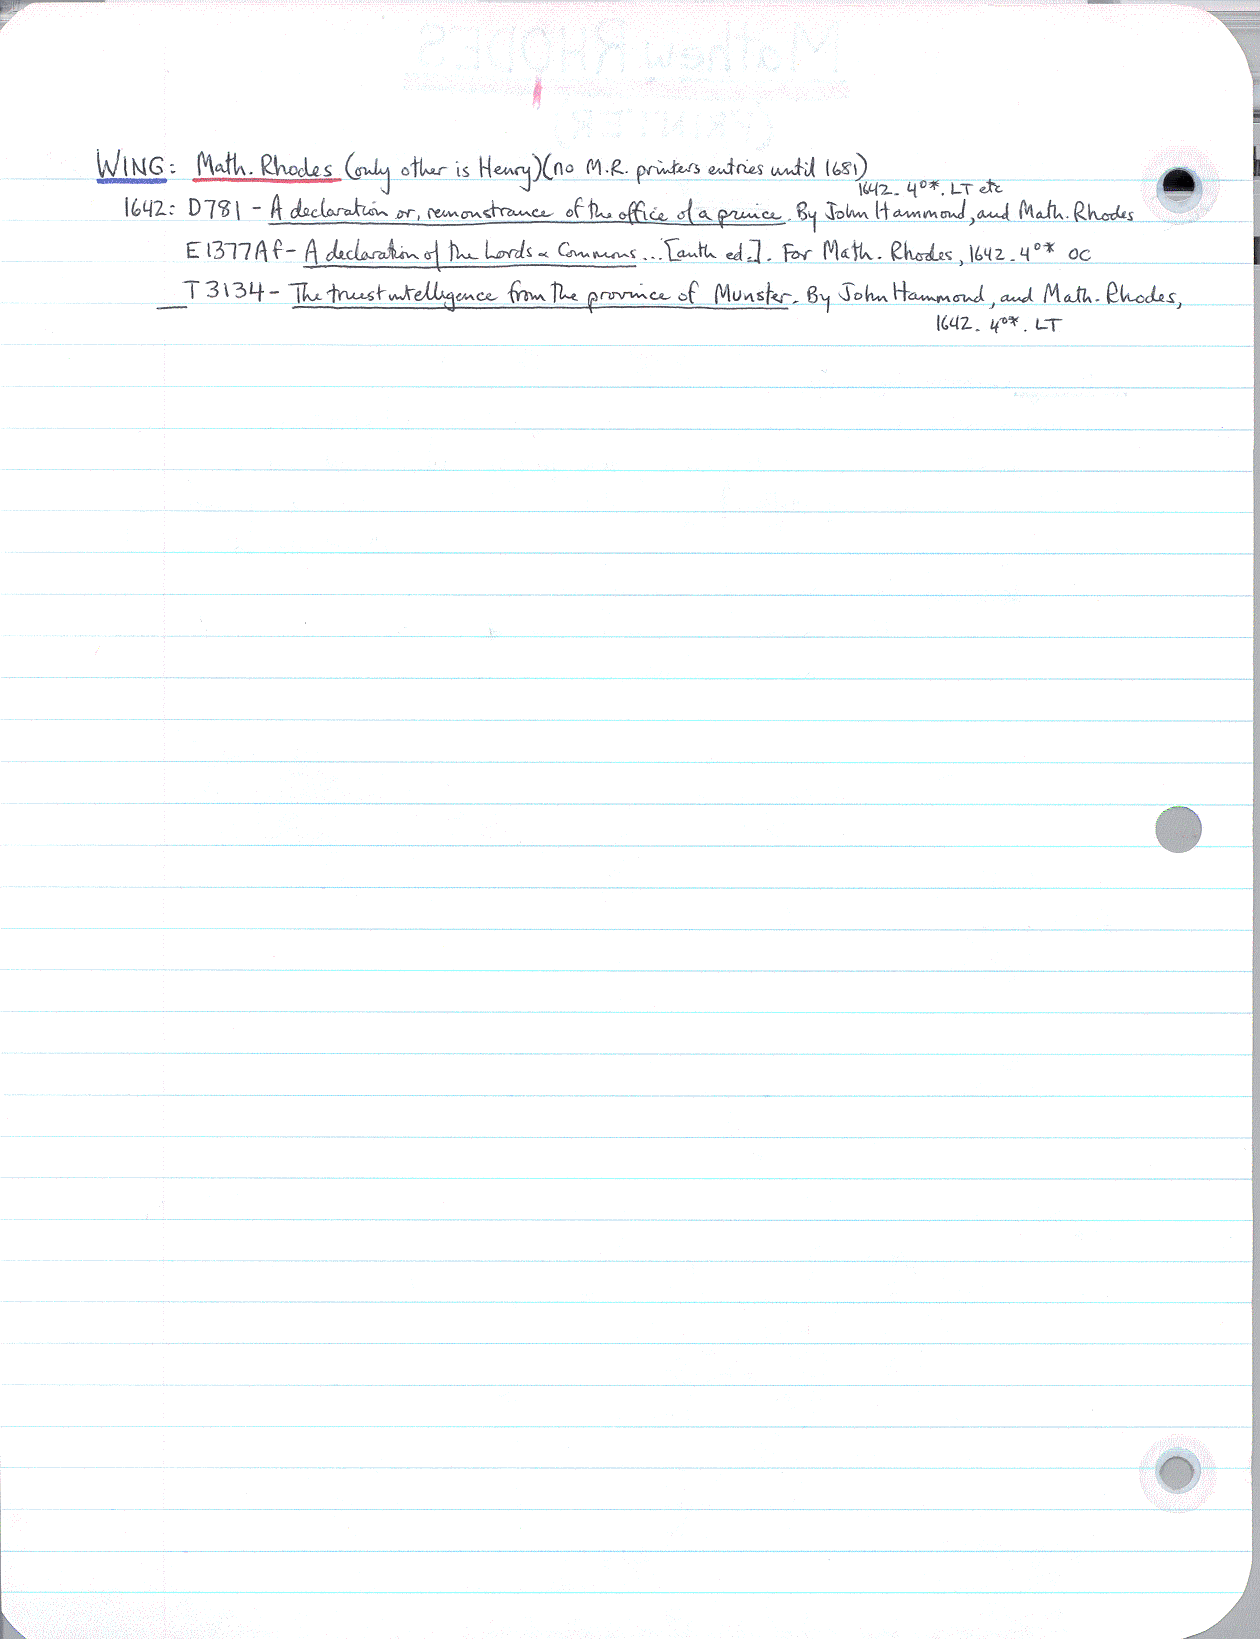 WING: Math. Rhodes (only other is Henry)(no M.R. printers entries until 1681)
1642. 4º*. LT etc
1642: D781 - A declaration or, remonstrance of the office of a prince. By John Hammond, and Math. Rhodes
E1377Af - A declaration of the Lords & Commons... [auth ed.]. For Math. Rhodes, 1642. 4º* OC
T3134 - The truest intelligence from the province of Munster. By John Hammond, and Math. Rhodes,
1642. 4º*. LT